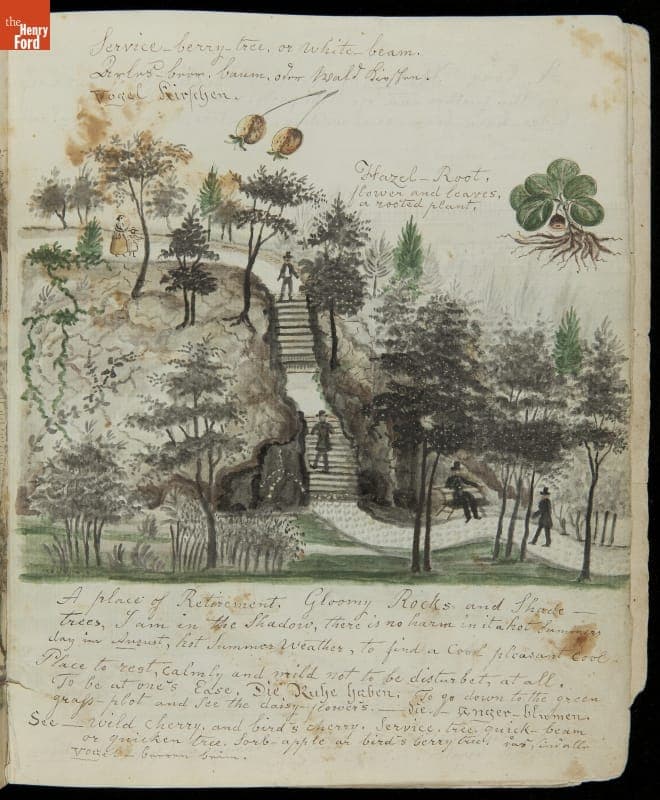 the
Henry
Ford
Service-berry-tree, or White-beam.
baum, oder Wald Kirschen.
Vogel Kirschen.
Hazel-Root,
flower and leaves,
a rooted plant.
A place of Retirement. Gloomy Rocks and Shade—
trees, I am in the Shadow, there is no harm in it a hot Summers
day in August, hot Summer Weather, to find a Cool pleasant Cool
Place to rest, calmly and mild not to be disturbet, at all,
To be at one's Ease, Die Ruhe haben. To go down to the green
grass-plot and See the daisy-flowers. — die — Anger-blumen.
See — Wild cherry, and bird's cherry, Service, tree, quick-beam
or quicken tree. Sorb-apple or bird's berry tree.
Vogel-beeren baum.